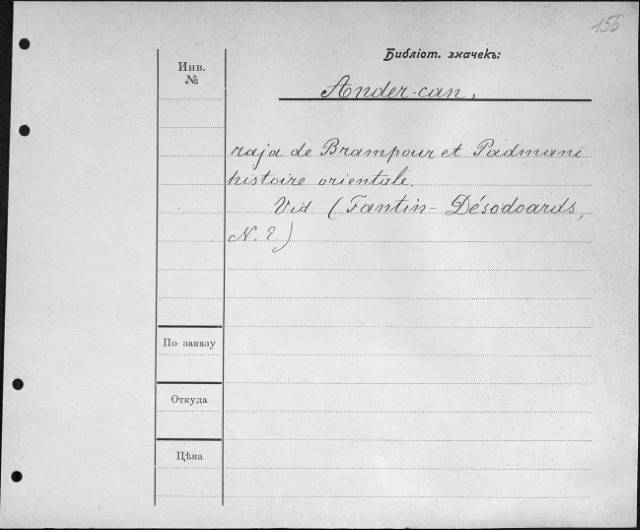 155
Библіот. значекъ:
Инв.
№
Ander-can,
raja de Brampour et Padmani
histoire orientale.
Vid (Fantin-Désodoards,
N. ?)
По заказу
Откуда
Цѣна